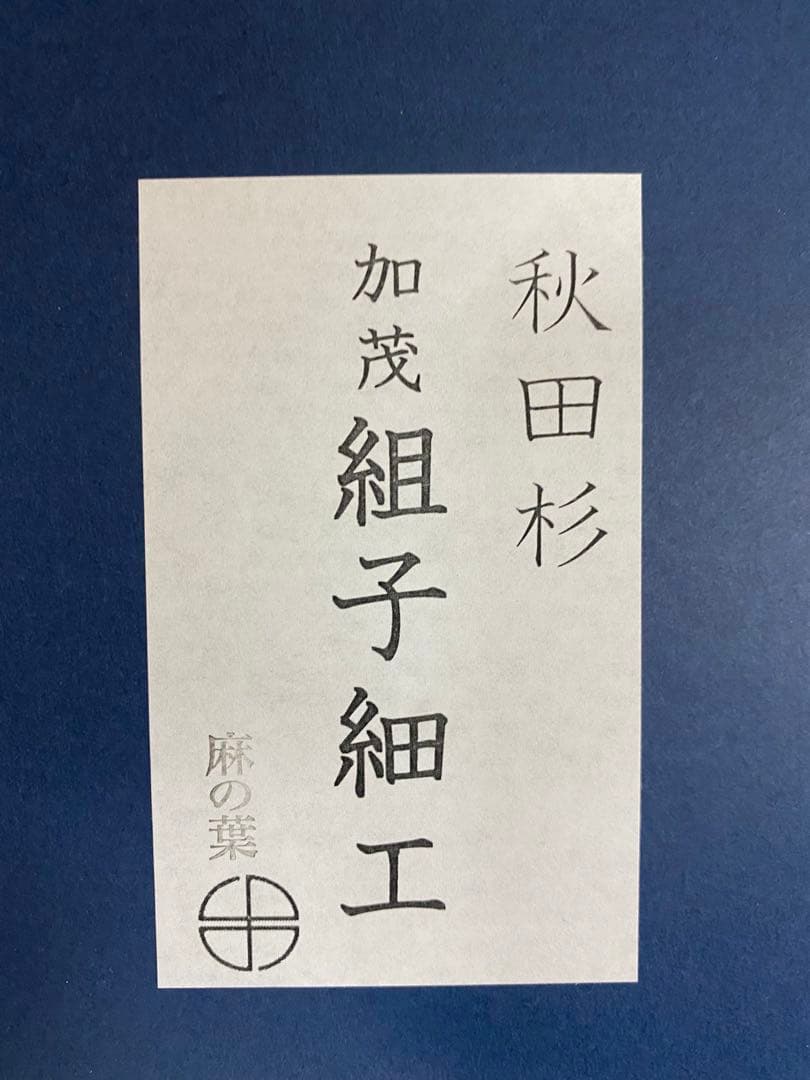 秋田杉
加茂組子細工
麻の葉